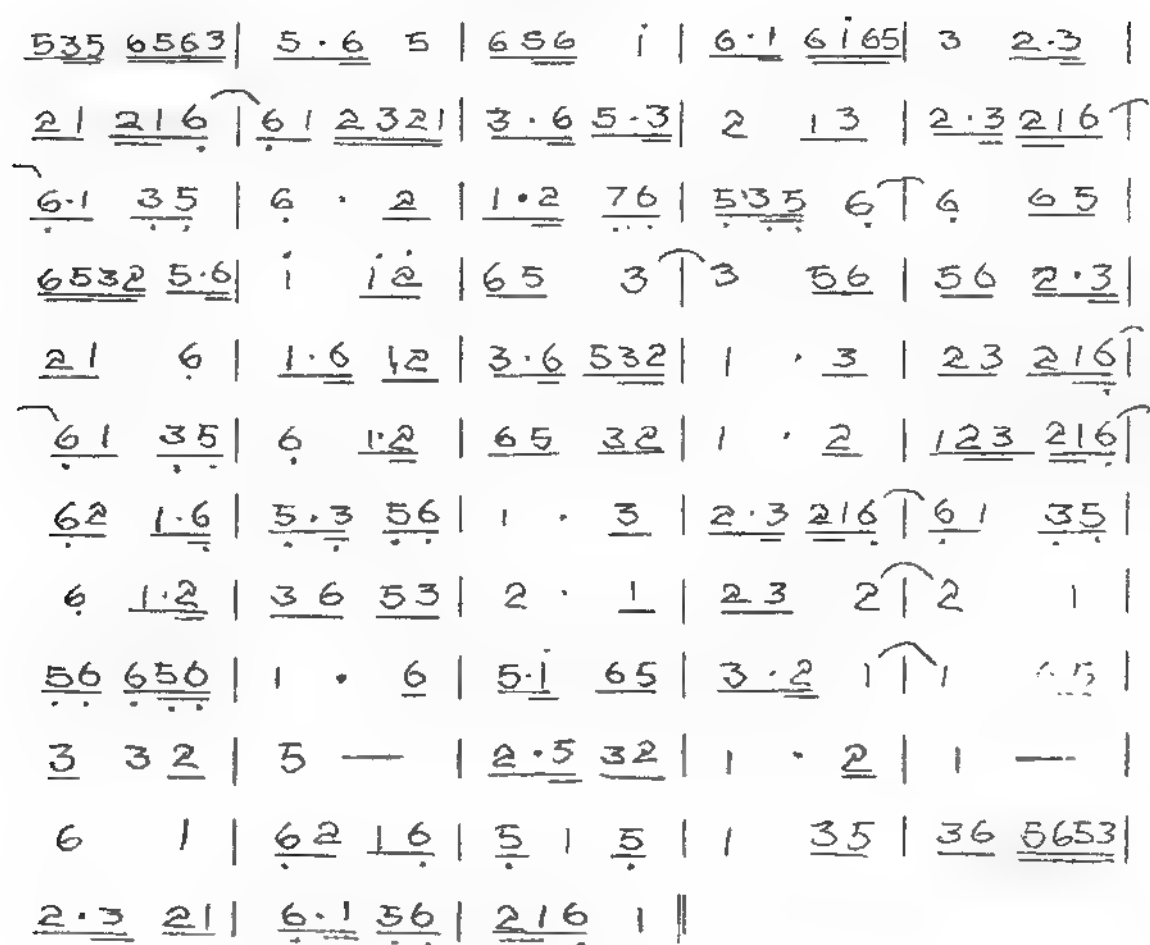 535 6563 | 5·6 5 | 656 i | 6·1 6i65 | 3 2·3 |
21 216 | 61 2321 | 3·6 5·3 | 2 13 | 2·3 216 |
6·1 35 | 6 · 2 | 1·2 76 | 5·35 6 | 6 65 |
6532 5·6 | i i2 | 65 3 | 3 56 | 56 2·3 |
21 6 | 1·6 12 | 3·6 532 | 1 · 3 | 23 216 |
61 35 | 6 1·2 | 65 32 | 1 · 2 | 123 216 |
62 1·6 | 5·3 56 | 1 · 3 | 2·3 216 | 61 35 |
6 1·2 | 36 53 | 2 · 1 | 23 2 | 2 1 |
56 656 | 1 · 6 | 5·i 65 | 3·2 1 | 1 65 |
3 3 2 | 5 — | 2·5 32 | 1 · 2 | 1 — |
6 1 | 62 16 | 5 1 5 | 1 35 | 36 5653 |
2·3 21 | 6·1 56 | 216 1 ‖